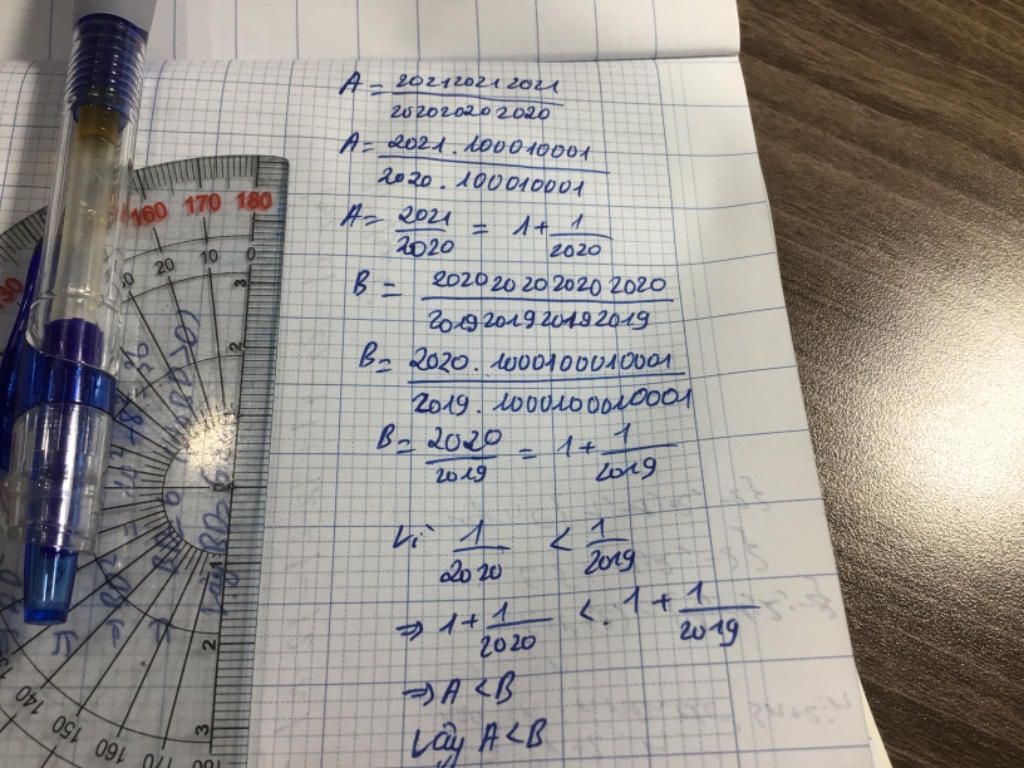 A = 202120212021 / 202020202020
A = 2021 . 100010001 / 2020 . 100010001
A = 2021 / 2020 = 1 + 1 / 2020
B = 2020202020202020 / 2019201920192019
B = 2020 . 1000100010001 / 2019 . 1000100010001
B = 2020 / 2019 = 1 + 1 / 2019
Vì 1 / 2020 < 1 / 2019
⇒ 1 + 1 / 2020 < 1 + 1 / 2019
⇒ A < B
Vậy A < B
160 170 180
20 10 0
3
2
1
2
3
140 150 160 170